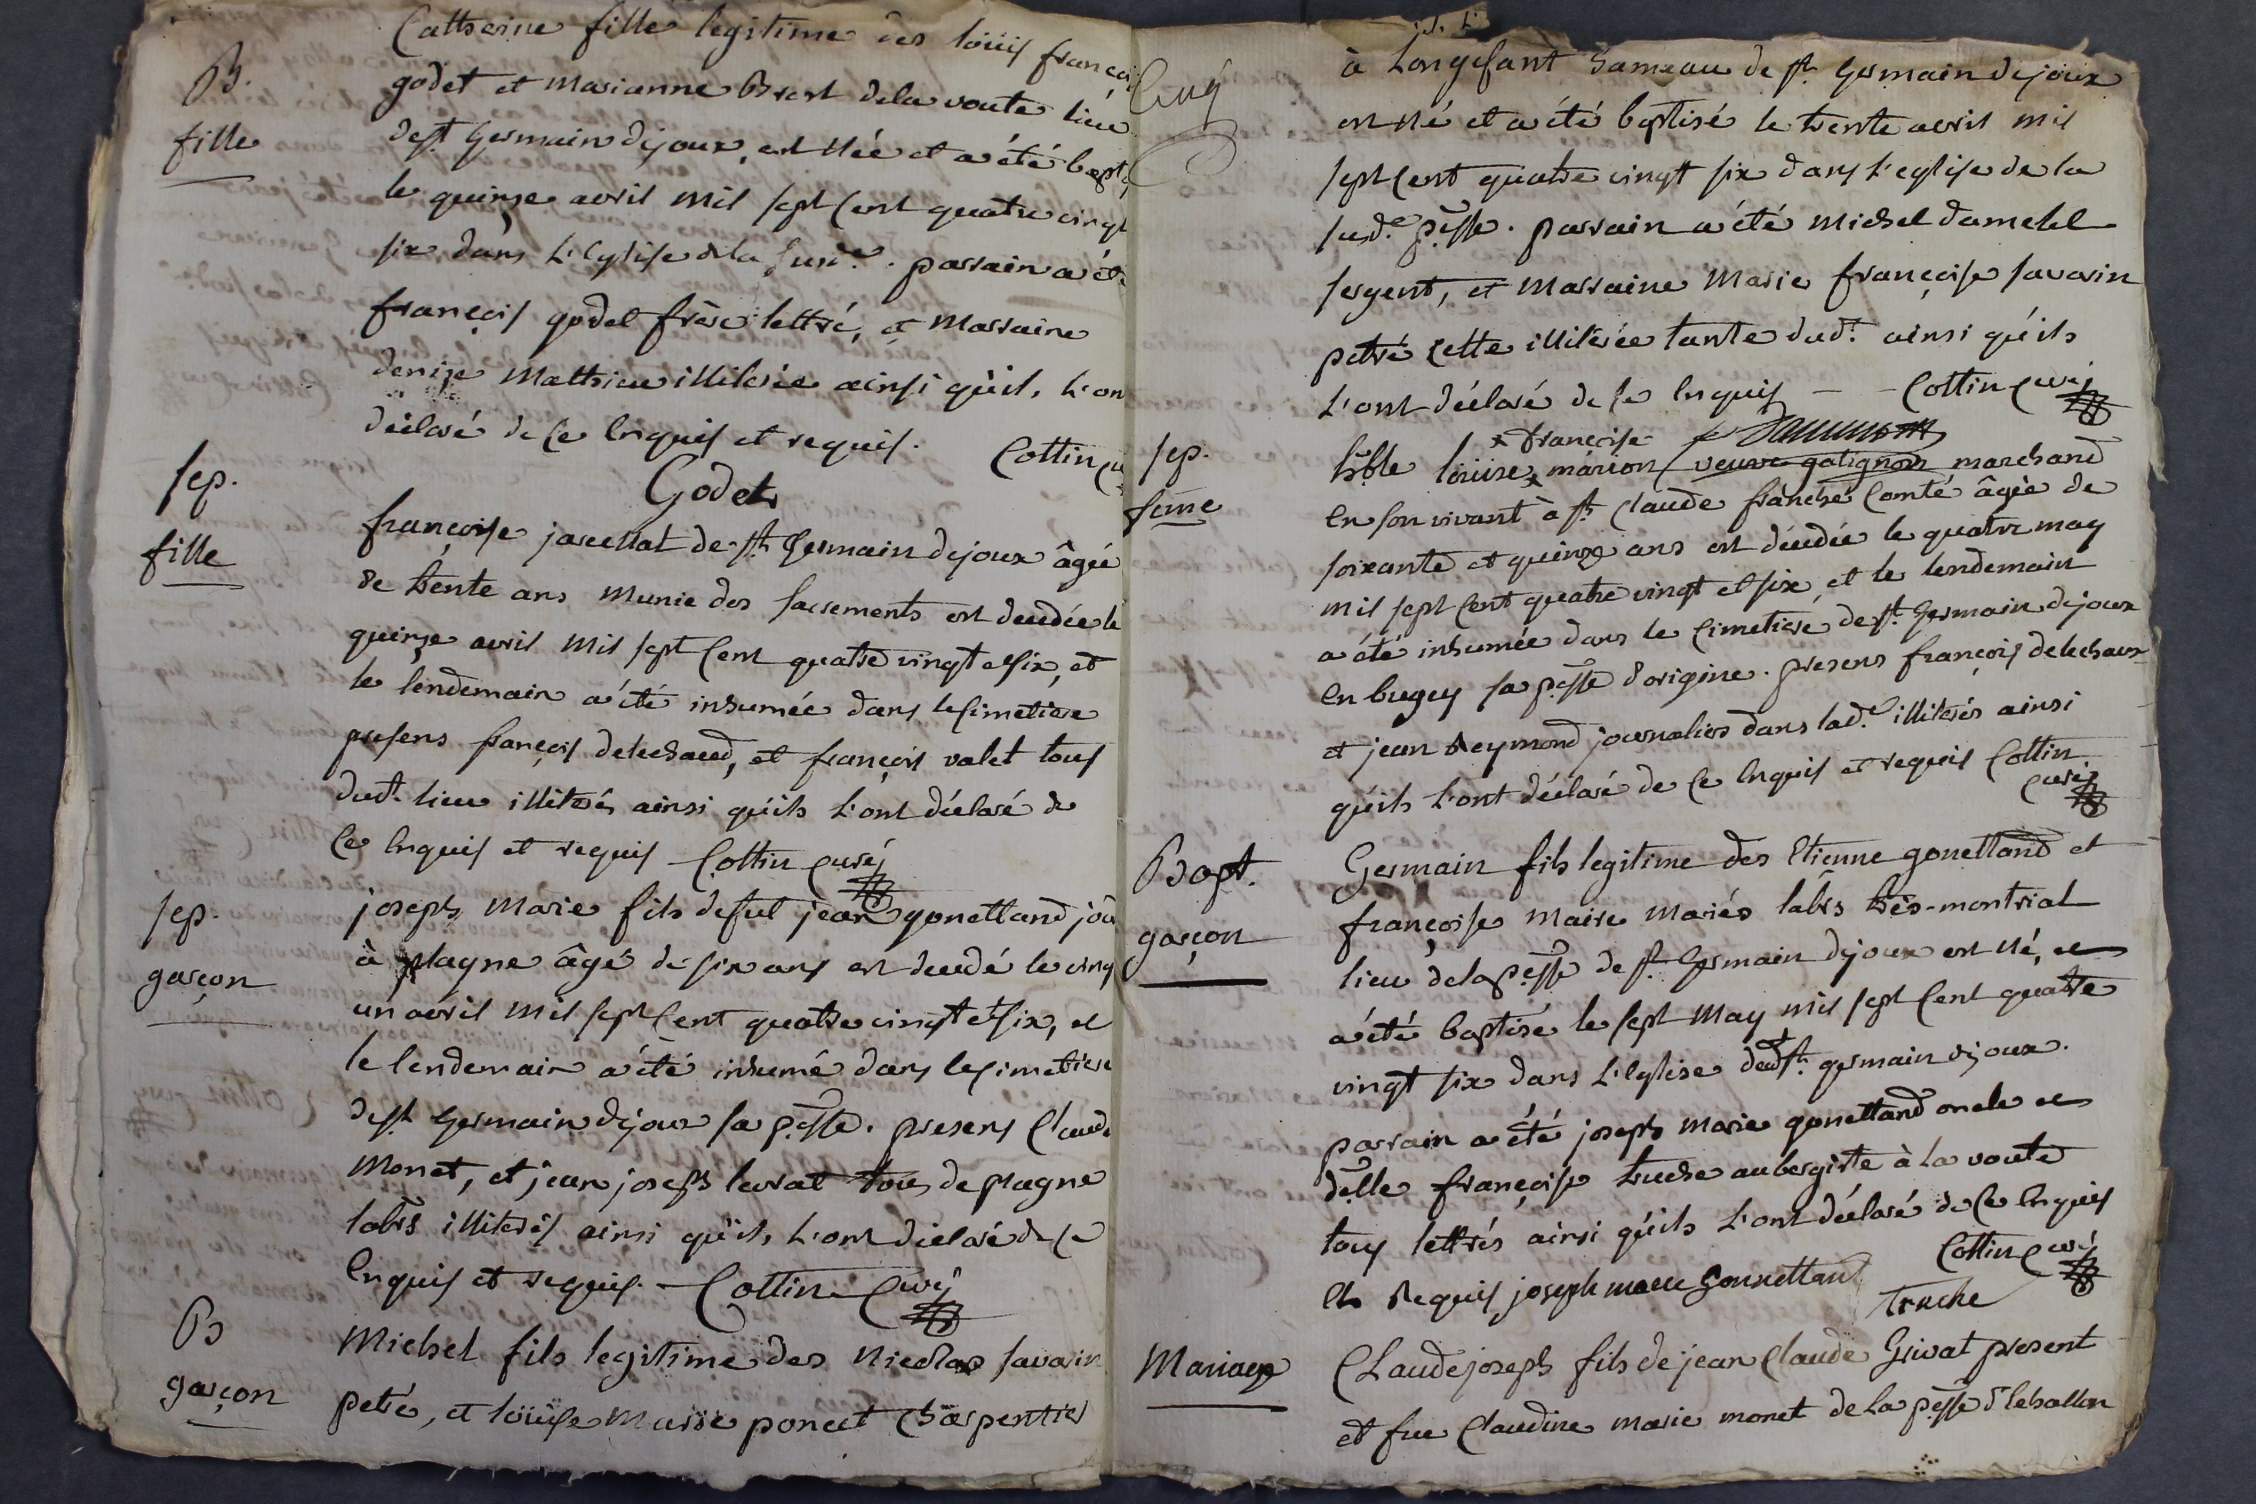 Catherine fille legitime des loüis françoi
B. godet et marianne Brest dela voute lieu
fille dest Germain dejoux, est née et a été bapt
le quinze avril mil sept cent quatre vingt
six dans L'eglise dela susde. parrain a été
françois godet frère lettré, et Marraine
denize Mathieu illiterée ainsi qu'ils l'ont
déclaré de ce Enquis et requis. Cottin cu
Godet
sep. françoise jacettat de st Germain dejoux âgée
fille de trente ans munie des sacrements est decedée le
quinze avril mil sept cent quatre vingt et six, et
le lendemain a été inhumée dans le cimetiere
presens françois delechaud, et françois valet tous
dudt. lieu illiterés ainsi qu'ils l'ont déclaré de
ce Enquis et requis Cottin curé
sep. joseph marie fils de fut jean gonettand jour
garçon à plagne âgé de six ans est decedé le vingt
un avril mil sept cent quatre vingt et six, et
le lendemain a été inhumé dans le cimetiere
dest Germain dejoux sa psse. presens Claude
Monet, et jean joseph levrat tous de plagne
labrs illiterés ainsi qu'ils l'ont déclaré de ce
Enquis et requis. Cottin Curé
B Michel fils legitime des Nicolas savarin
garçon petré, et loüise Marie poncet charpentier
Cinq
à Longefant hameau de st. Germain dejoux
est né et a été baptisé le trente avril mil
sept cent quatre vingt six dans L'eglise de la
susde. psse. parrain a été Michel
sergent, et Marraine Marie françoise savarin
petré cette illiterée tante dudt. ainsi qu'ils
l'ont déclaré de ce Enquis - - Cottin curé
x françoise
sep. hble loüise x marion veuve galignon marchand
feme En son vivant à st Claude franche Comté âgée de
soixante et quinze ans est décedée le quatre may
mil sept cent quatre vingt et six, et le lendemain
a été inhumée dans le cimetiere dest. Germain dejoux
En bugey sa psse d'origine. presens françois delechaux
et jean Reymond journaliers dans lade. illiterés ainsi
qu'ils l'ont déclaré de ce Enquis et requis Cottin
curé
Bapt. Germain fils legitime des Etienne gonettand et
garçon françoise maire mariés labrs très-montréal
lieu dela psse de st. Germain dejoux est né, et
a été baptisé le sept may mil sept cent quatre
vingt six dans L'eglise dudt st. germain dejoux.
parrain a été joseph marie gonettand oncle et
delle françoise truche aubergiste à la voute
tous lettrés ainsi qu'ils l'ont déclaré de ce Enquis
Cottin curé
et Requis joseph marie Gonnettand Truche
Mariage Claude joseph fils de jean Claude Grivat present
et fue Claudine marie monet de la psse